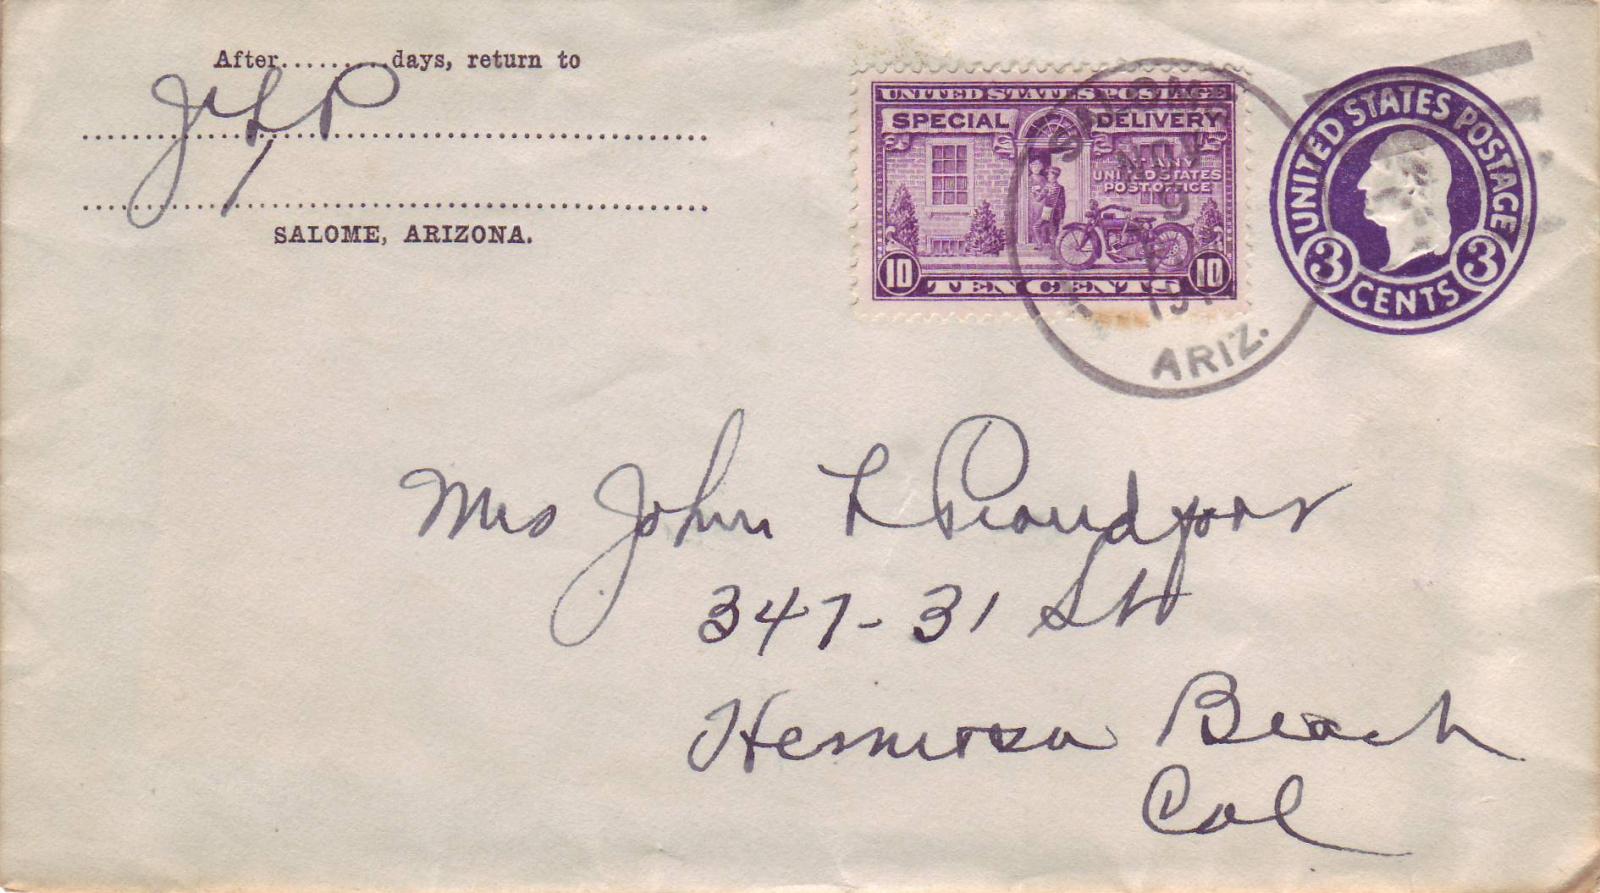 After..........days, return to
J L P
SALOME, ARIZONA.
UNITED STATES POSTAGE
SPECIAL DELIVERY
AT ANY
UNITED STATES
POST OFFICE
10 10
TEN CENTS
SALOME
NOV
9
ARIZ.
UNITED STATES POSTAGE
3 3
CENTS
Mrs John L Proudfoot
347-31 St
Hermosa Beach
Cal